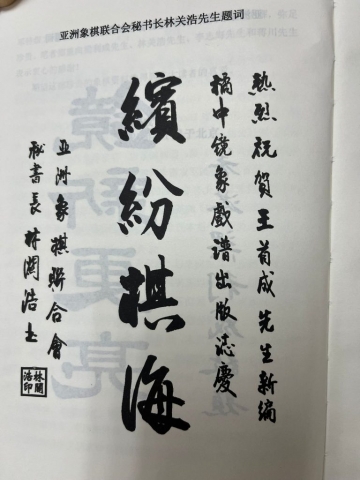 亚洲象棋联合会秘书长林关浩先生题词
热烈祝贺王首成先生新编
橘中镜象戲谱出版誌慶
繽紛棋海
亚洲象棋聨合會
秘書長林関浩士
林関浩印